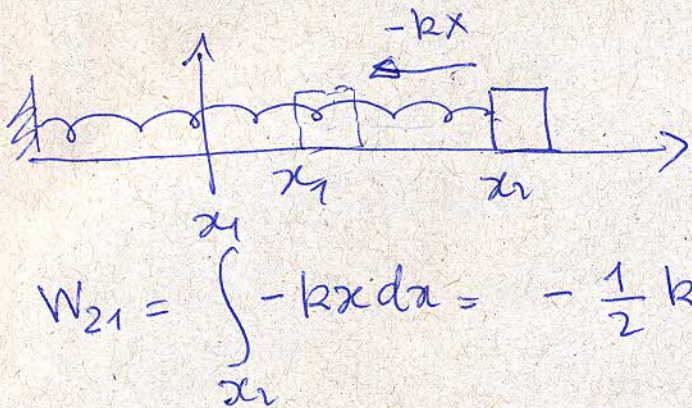 -kx
x₁ x₂
W₂₁ = ∫_{x₂}^{x₁} -kx dx = - 1/2 k